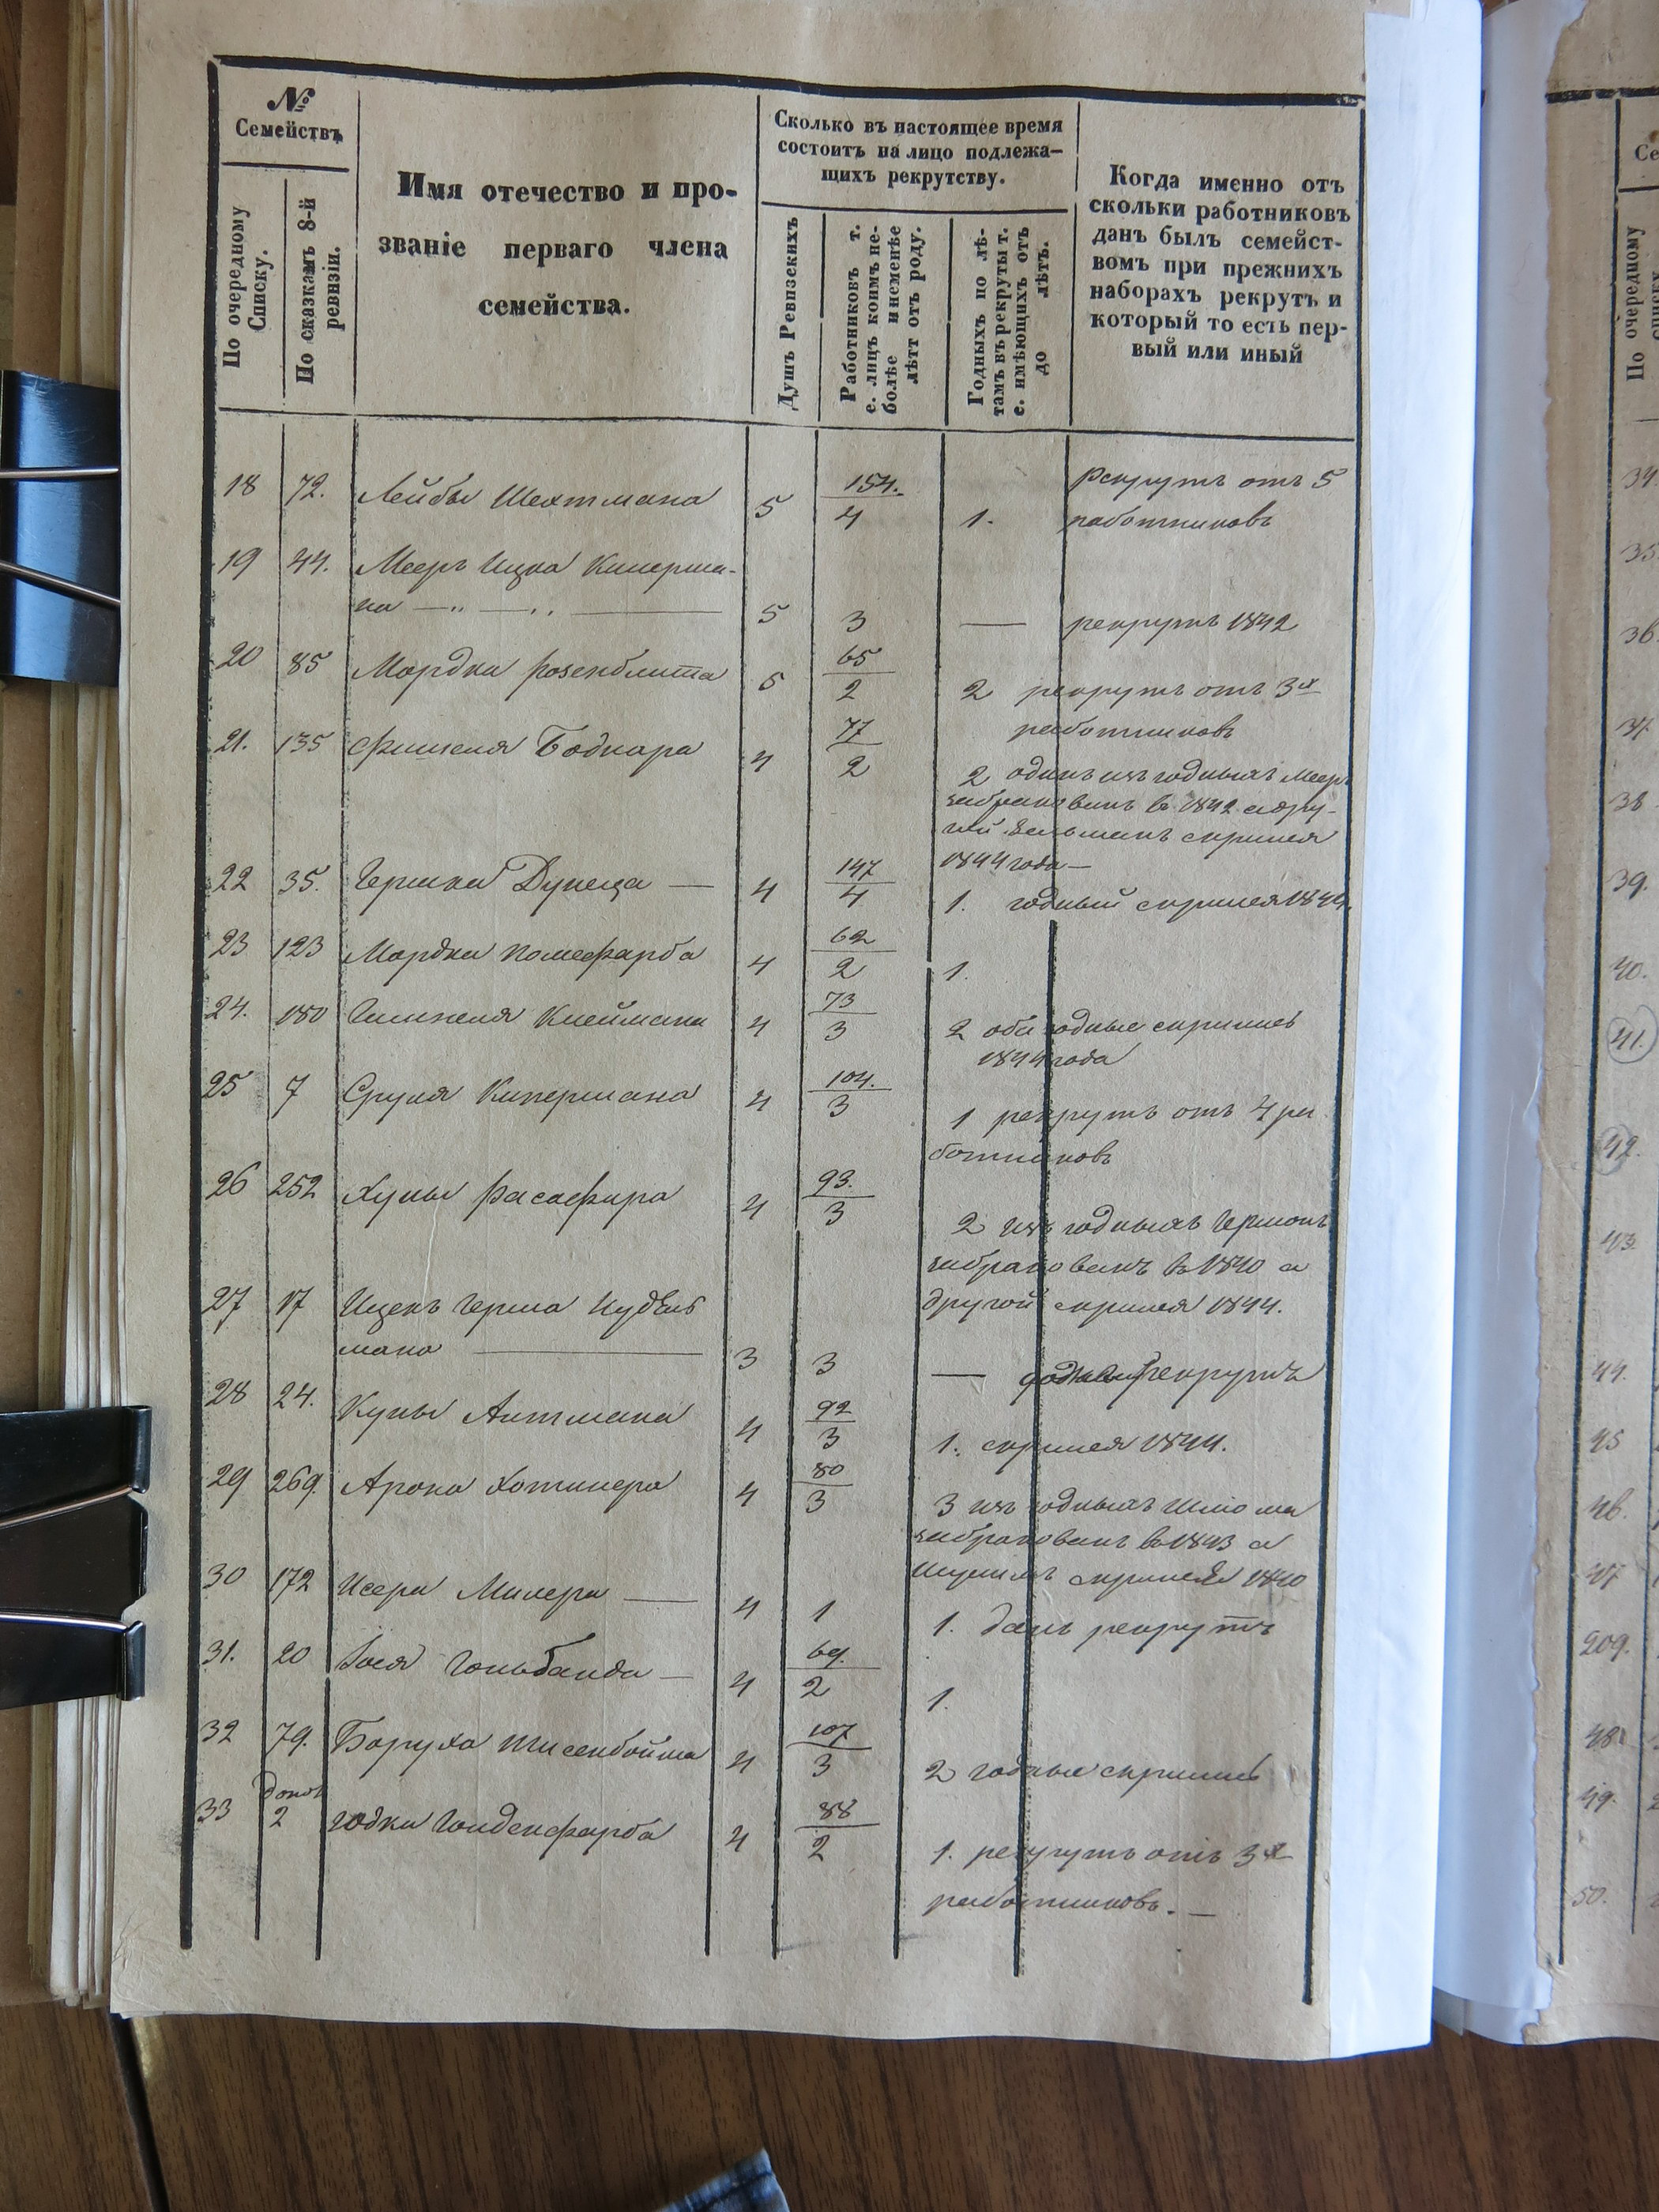 №
Семействъ
По очередному
Списку.
По сказкамъ 8-й
ревизіи.
Имя отечество и про-
званіе перваго члена
семейства.
Сколько въ настоящее время
состоитъ на лицо подлежа-
щихъ рекрутству.
Душъ Ревизскихъ
Работниковъ т.
е. лицъ коимъ не-
болѣе и неменѣе
лѣтт отъ роду.
Годныхъ по лѣ-
тамъ въ рекруты т.
е. имѣющихъ отъ
до лѣтъ.
Когда именно отъ
скольки работниковъ
данъ былъ семейст-
вомъ при прежнихъ
наборахъ рекрутъ и
который то есть пер-
вый или иный
18 72. Лейбы Шехтмана 5 154. 4 1. Рекрутъ отъ 5
работниковъ
19 44. Мееръ Ицка Киперма-
на — „ — „ — 5 3 — рекрутъ 1842
20 85 Мордка Розенблита 5 65 2 2 рекрутъ отъ 3х
работниковъ
21. 135 Фишеля Боднара 4 77 2 2 одинъ изъ годныхъ Мееръ
забракованъ въ 1842 а дру-
гой Зельманъ скрылся
1844 года —
22 35. Гершка Дунеца — 4 147 4 1. годный скрылся 1844.
23 123 Мордка 4 62 2 1.
24. 180 Клеймана 4 73 3 2 оба годные скрылись
1844 года
25 7 Сруля Кипермана 4 104. 3 1 рекрутъ отъ 4 ра
ботниковъ
26 252 4 93. 3 2 изъ годныхъ Гершонъ
забракованъ въ 1840 а
другой скрылся 1844.
27 17 Ицекъ Герша
мана — 3 3 — рекрутъ
28 24. Альтмана 4 92 3 1. скрылся 1844.
29 269. Арона Хотинера 4 80 3 3 изъ годныхъ Шлома
забракованъ въ 1843 а
скрылся 1840
30 172 Исера Милера — 4 1 1. данъ рекрутъ
31. 20 Гольбанда — 4 69. 2 1.
32 79. Боруха 4 107 3 2 годные скрылись
33 2 Гольденфарба 4 88 2 1. рекрутъ отъ 3х
работниковъ. —
По очередному
34.
35.
36.
37.
38
39.
40.
41.
42.
43.
44.
45
46.
47
209.
48.
49.
50.